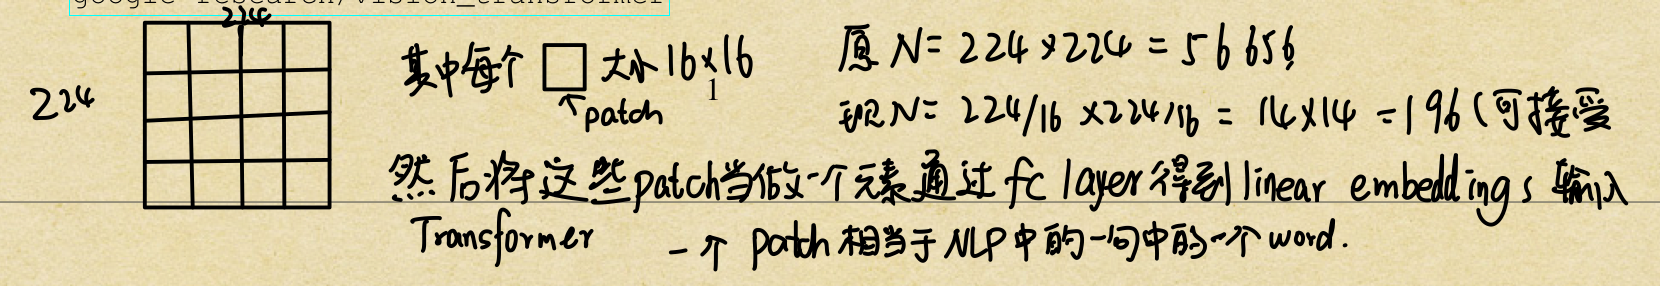 google-research/vision_transformer
224
224
其中每个 □ 大小 16×16
1
↑patch
原 N = 224×224 = 56656
现 N = 224/16 × 224/16 = 14×14 = 196 (可接受
然后将这些patch当做一个元素通过 fc layer 得到 linear embeddings 输入
Transformer 一个 patch 相当于 NLP 中的一句中的一个 word.